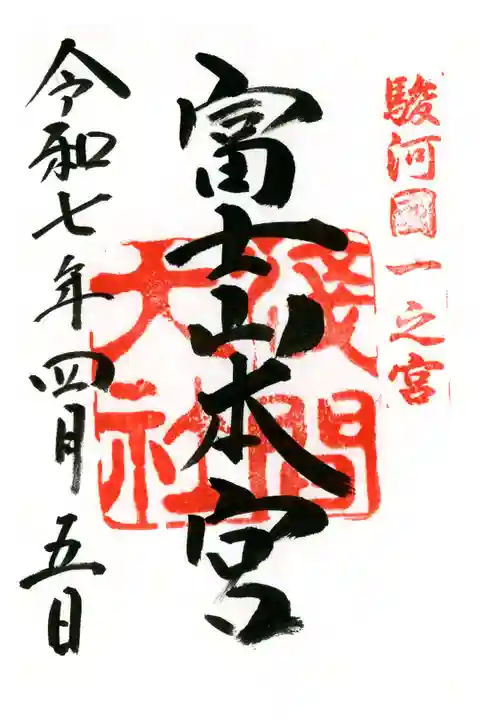 駿河國一之宮
富士山本宮
淺間大社
令和七年四月五日